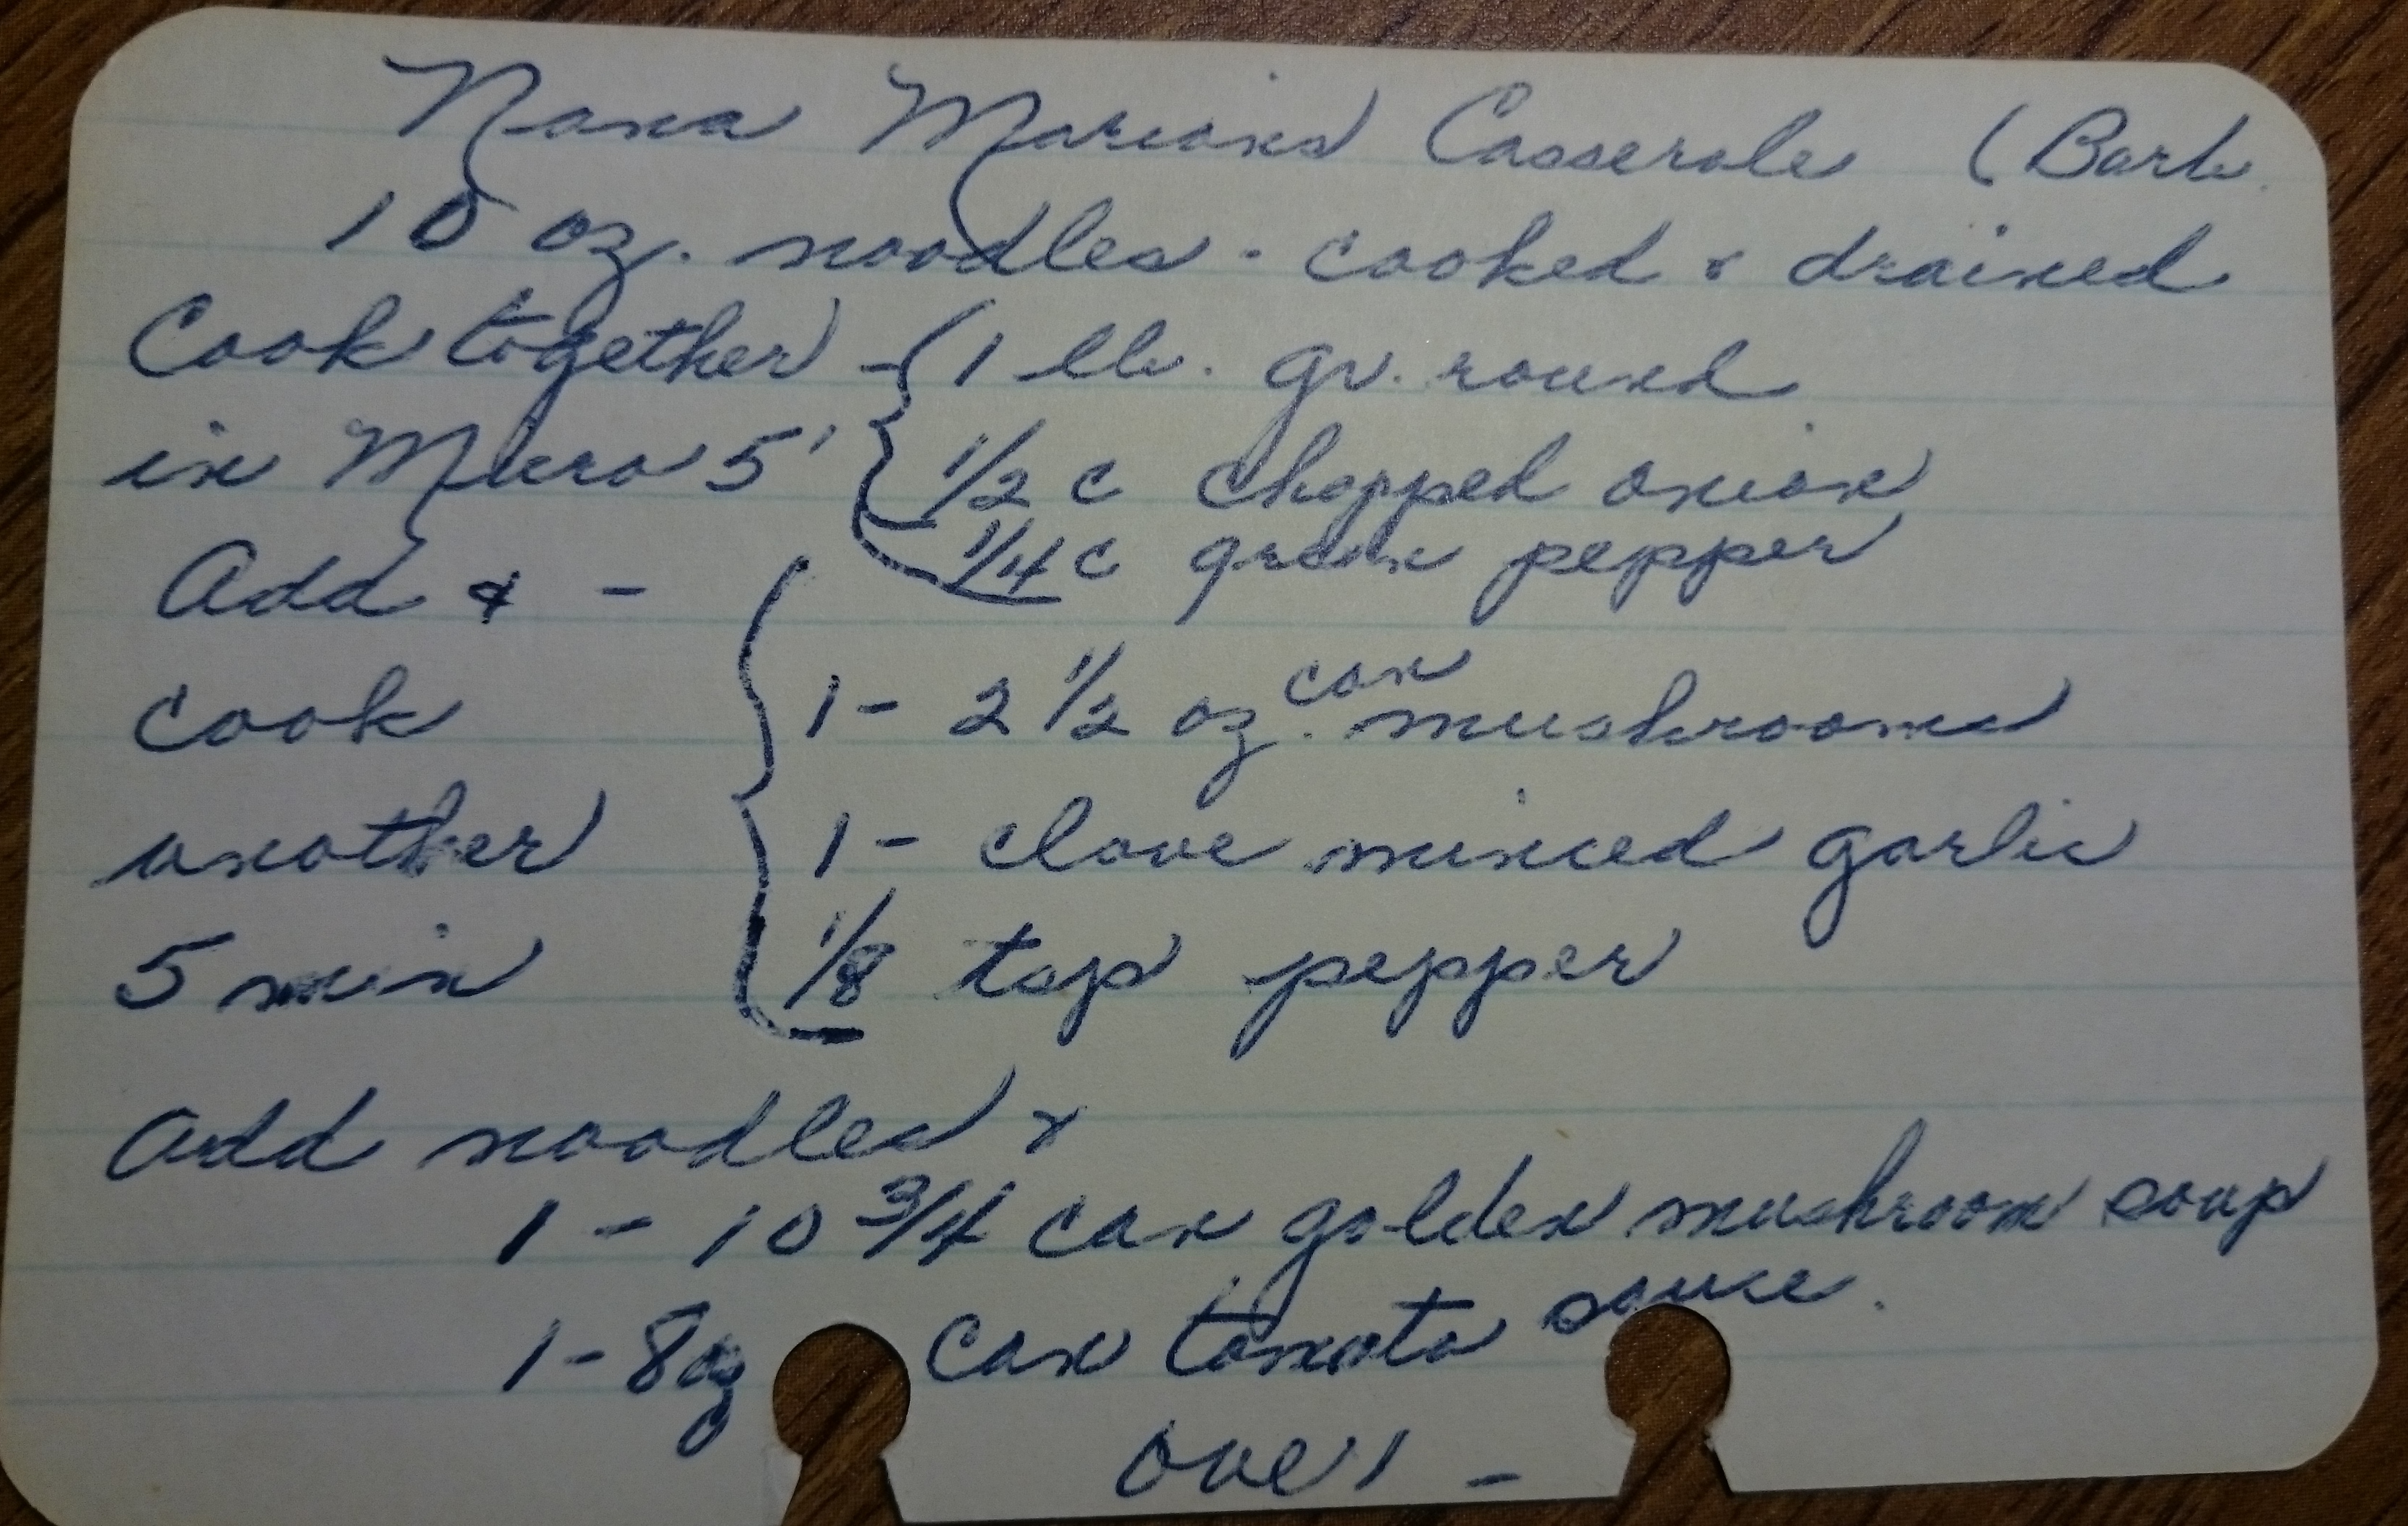 Nana Marions Casserole (Barb.
10 oz. noodles - cooked & drained
Cook together - { 1 lb. gr. round
in Micro 5' 1/2 c chopped onion
1/4 c green pepper
Add & -
cook 1 - 2 1/2 oz. can mushrooms
another 1 - clove minced garlic
5 min 1/8 tsp pepper
Add noodles &
1 - 10 3/4 can golden mushroom soup
1 - 8 oz can tomato sauce.
over -